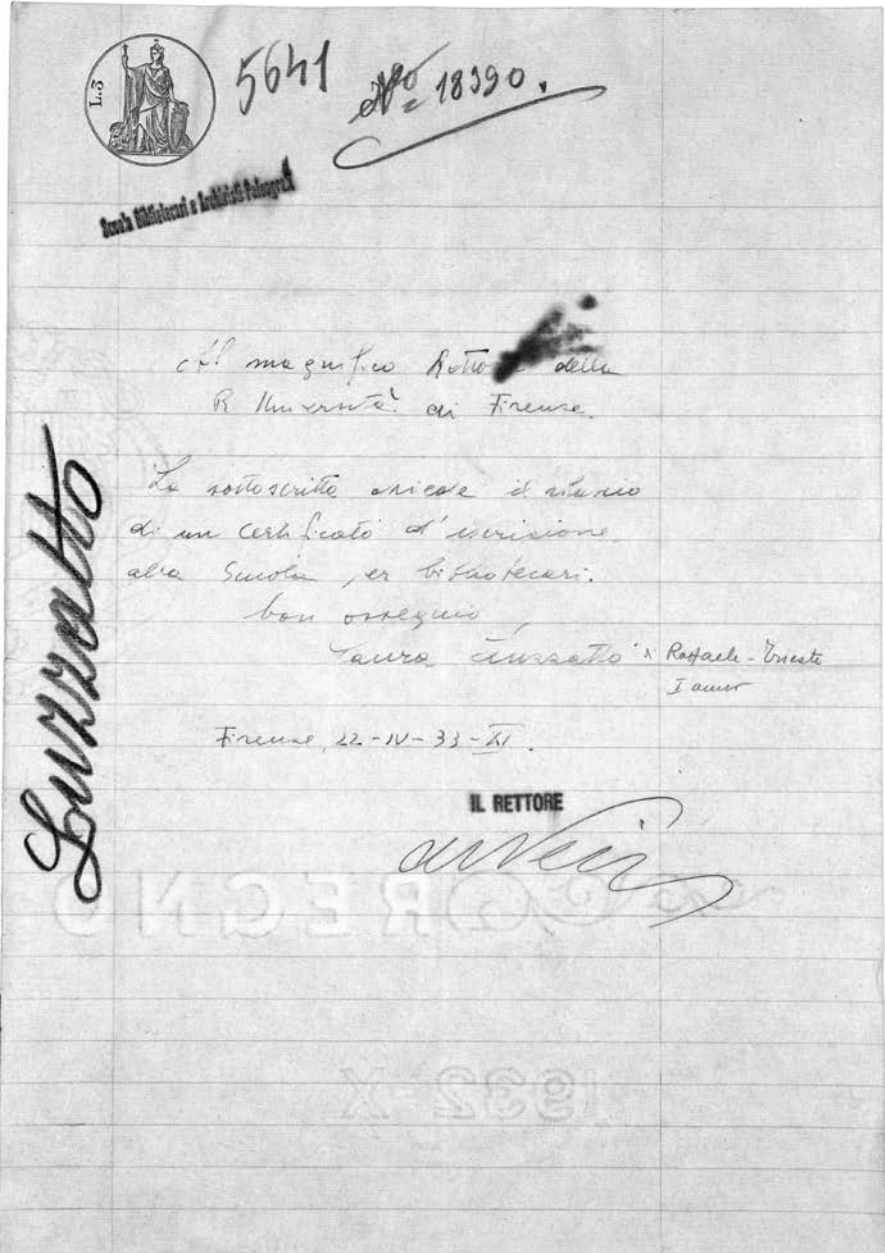 L.3
5641
Nº 18390.
Scuola Bibliotecari e Archivisti Paleografi
Al magnifico Rettore della
R Università di Firenze.
La sottoscritta chiede il rilascio
di un certificato d'iscrizione
alla Scuola per bibliotecari.
Con ossequio
Laura Luzzatto di Raffaele - Trieste
I anno
Firenze, 22-IV-33-XI.
Luzzatto
IL RETTORE
REGNO
1932 X